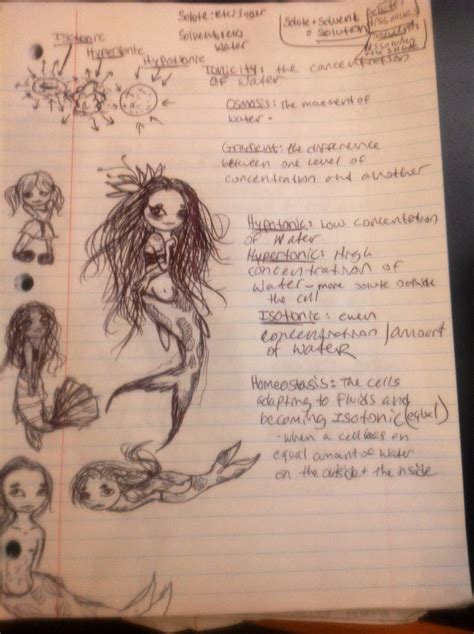 Isotonic
Hypertonic
Hypotonic
Solute:
Water
Solute + Solvent
= Solution
Tonicity: the concentration
of water
Osmosis: The movement of
water.
Gradient: the difference
between one level of
concentration and another
Hypotonic: Low concentration
of Water
Hypertonic: High
concentration of
Water - more solute outside
the cell
Isotonic: even
concentration/amount
of water
Homeostasis: The cells
adapting to fluids and
becoming Isotonic (equal)
- when a cell has an
equal amount of Water
on the outside + the inside